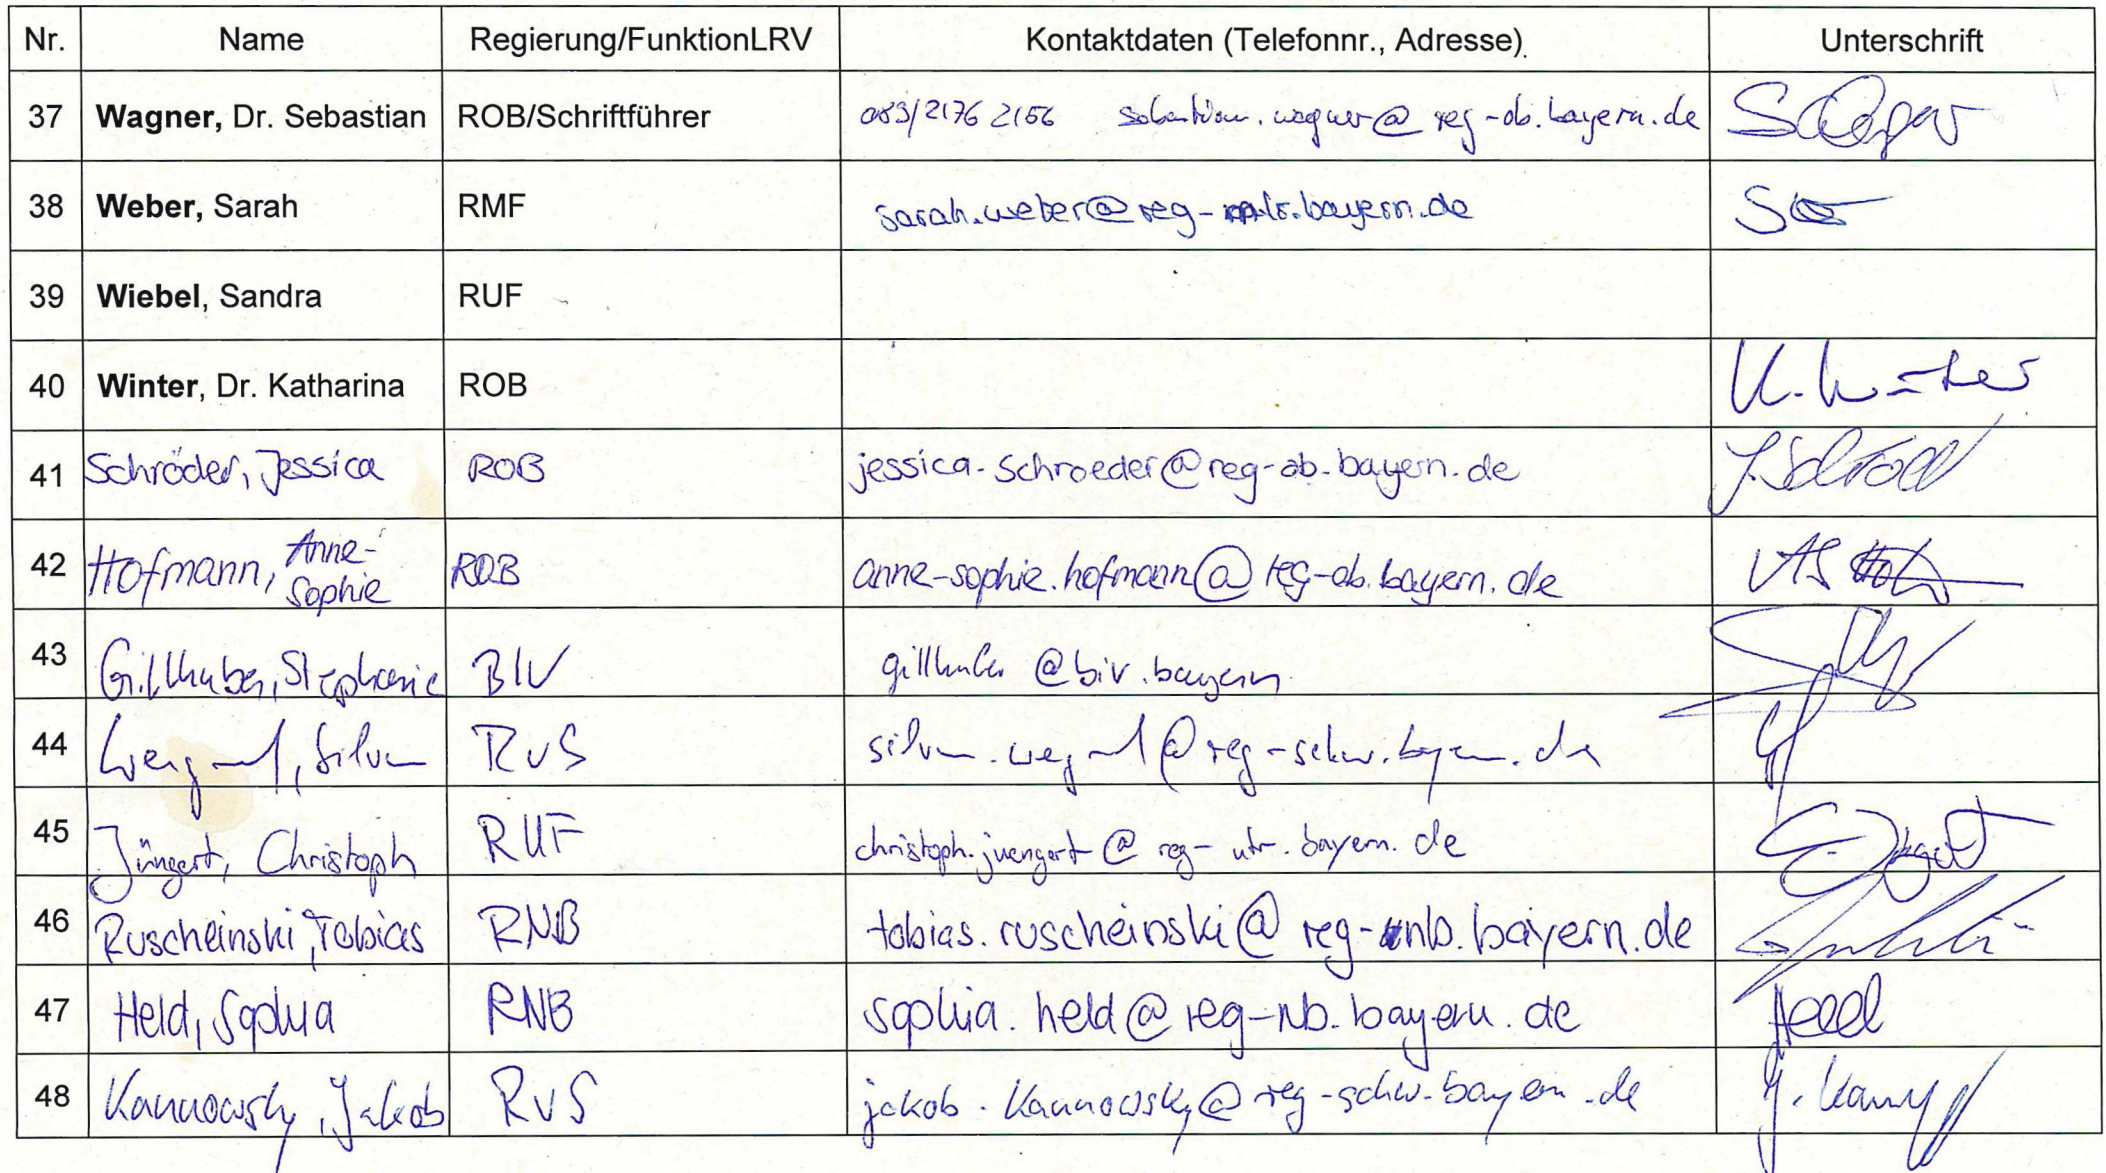 Nr. Name Regierung/FunktionLRV Kontaktdaten (Telefonnr., Adresse) Unterschrift
37 Wagner, Dr. Sebastian ROB/Schriftführer 089/2176 2156 sebastian.wagner@reg-ob.bayern.de
38 Weber, Sarah RMF sarah.weber@reg-mfr.bayern.de
39 Wiebel, Sandra RUF
40 Winter, Dr. Katharina ROB K. Winter
41 Schröder, Jessica ROB jessica.schroeder@reg-ob.bayern.de J. Schröd
42 Hofmann, Anne-Sophie ROB anne-sophie.hofmann@reg-ob.bayern.de
43 Gillhuber, Stephanie BIV gillhuber@biv.bayern
44 RvS
45 Jüngert, Christoph RUF christoph.juengert@reg-ufr.bayern.de
46 Ruscheinski, Tobias RNB tobias.ruscheinski@reg-nb.bayern.de
47 Held, Sophia RNB sophia.held@reg-nb.bayern.de Held
48 Kannowsky, Jakob RvS jakob.kannowsky@reg-schw.bayern.de